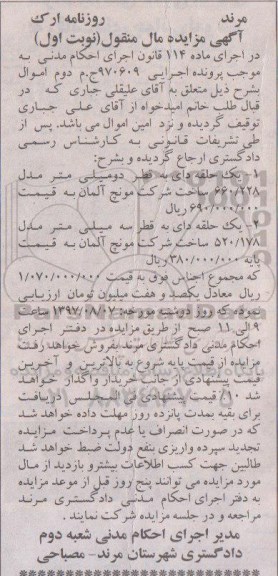 مرند روزنامه ارک
آگهی مزایده مال منقول(نوبت اول)
در اجرای ماده ۱۱۴ قانون اجرای احکام مدنی به
موجب پرونده اجرایی ۹۷۰۶۰۹ج.م دوم اموال
بشرح ذیل متعلق به آقای علیقلی جباری که در
قبال طلب خانم امیدخواه از آقای علی جباری
توقیف گردیده و نزد امین اموال می باشد. پس از
طی تشریفات قانونی به کارشناس رسمی
دادگستری ارجاع گردیده و بشرح:
۱- یک حلقه دای به قطر دومیلی متر مدل
۶۶۰/۲۲۸ ساخت شرکت مونچ آلمان به قیمت
۶۹۰/۰۰۰/۰۰۰ ریال
۲- یک حلقه دای به قطر سه میلی متر مدل
۵۲۰/۱۷۸ ساخت شرکت مونچ آلمان به قیمت
پایه ۳۸۰/۰۰۰/۰۰۰ ریال
که مجموع اجناس فوق به قیمت ۱/۰۷۰/۰۰۰/۰۰۰
ریال معادل یکصد و هفت میلیون تومان ارزیابی
نموده که روز دوشنبه مورخه: ۱۳۹۷/۰۸/۰۷ ساعت
۹ الی ۱۱ صبح از طریق مزایده در دفتر اجرای
احکام مدنی دادگستری مرند بفروش خواهد رفت
مزایده از قیمت پایه شروع به بالاترین و آخرین
قیمت پیشنهادی از جانب خریدار واگذار خواهد
شد ۱۰٪ قیمت پیشنهادی فی المجلس دریافت
برای بقیه بمدت پانزده روز مهلت داده خواهد شد
که در صورت انصراف یا عدم پرداخت مزایده
تجدید سپرده واریزی بنفع دولت ضبط خواهد شد
طالبین جهت کسب اطلاعات بیشتر و بازدید از مال
مورد مزایده می توانند پنج روز قبل از موعد مزایده
به دفتر اجرای احکام مدنی دادگستری مرند
مراجعه و در جلسه مزایده شرکت نمایند .
مدیر اجرای احکام مدنی شعبه دوم
دادگستری شهرستان مرند- مصباحی